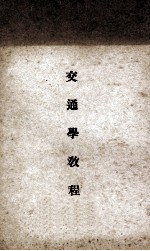 交通學教程